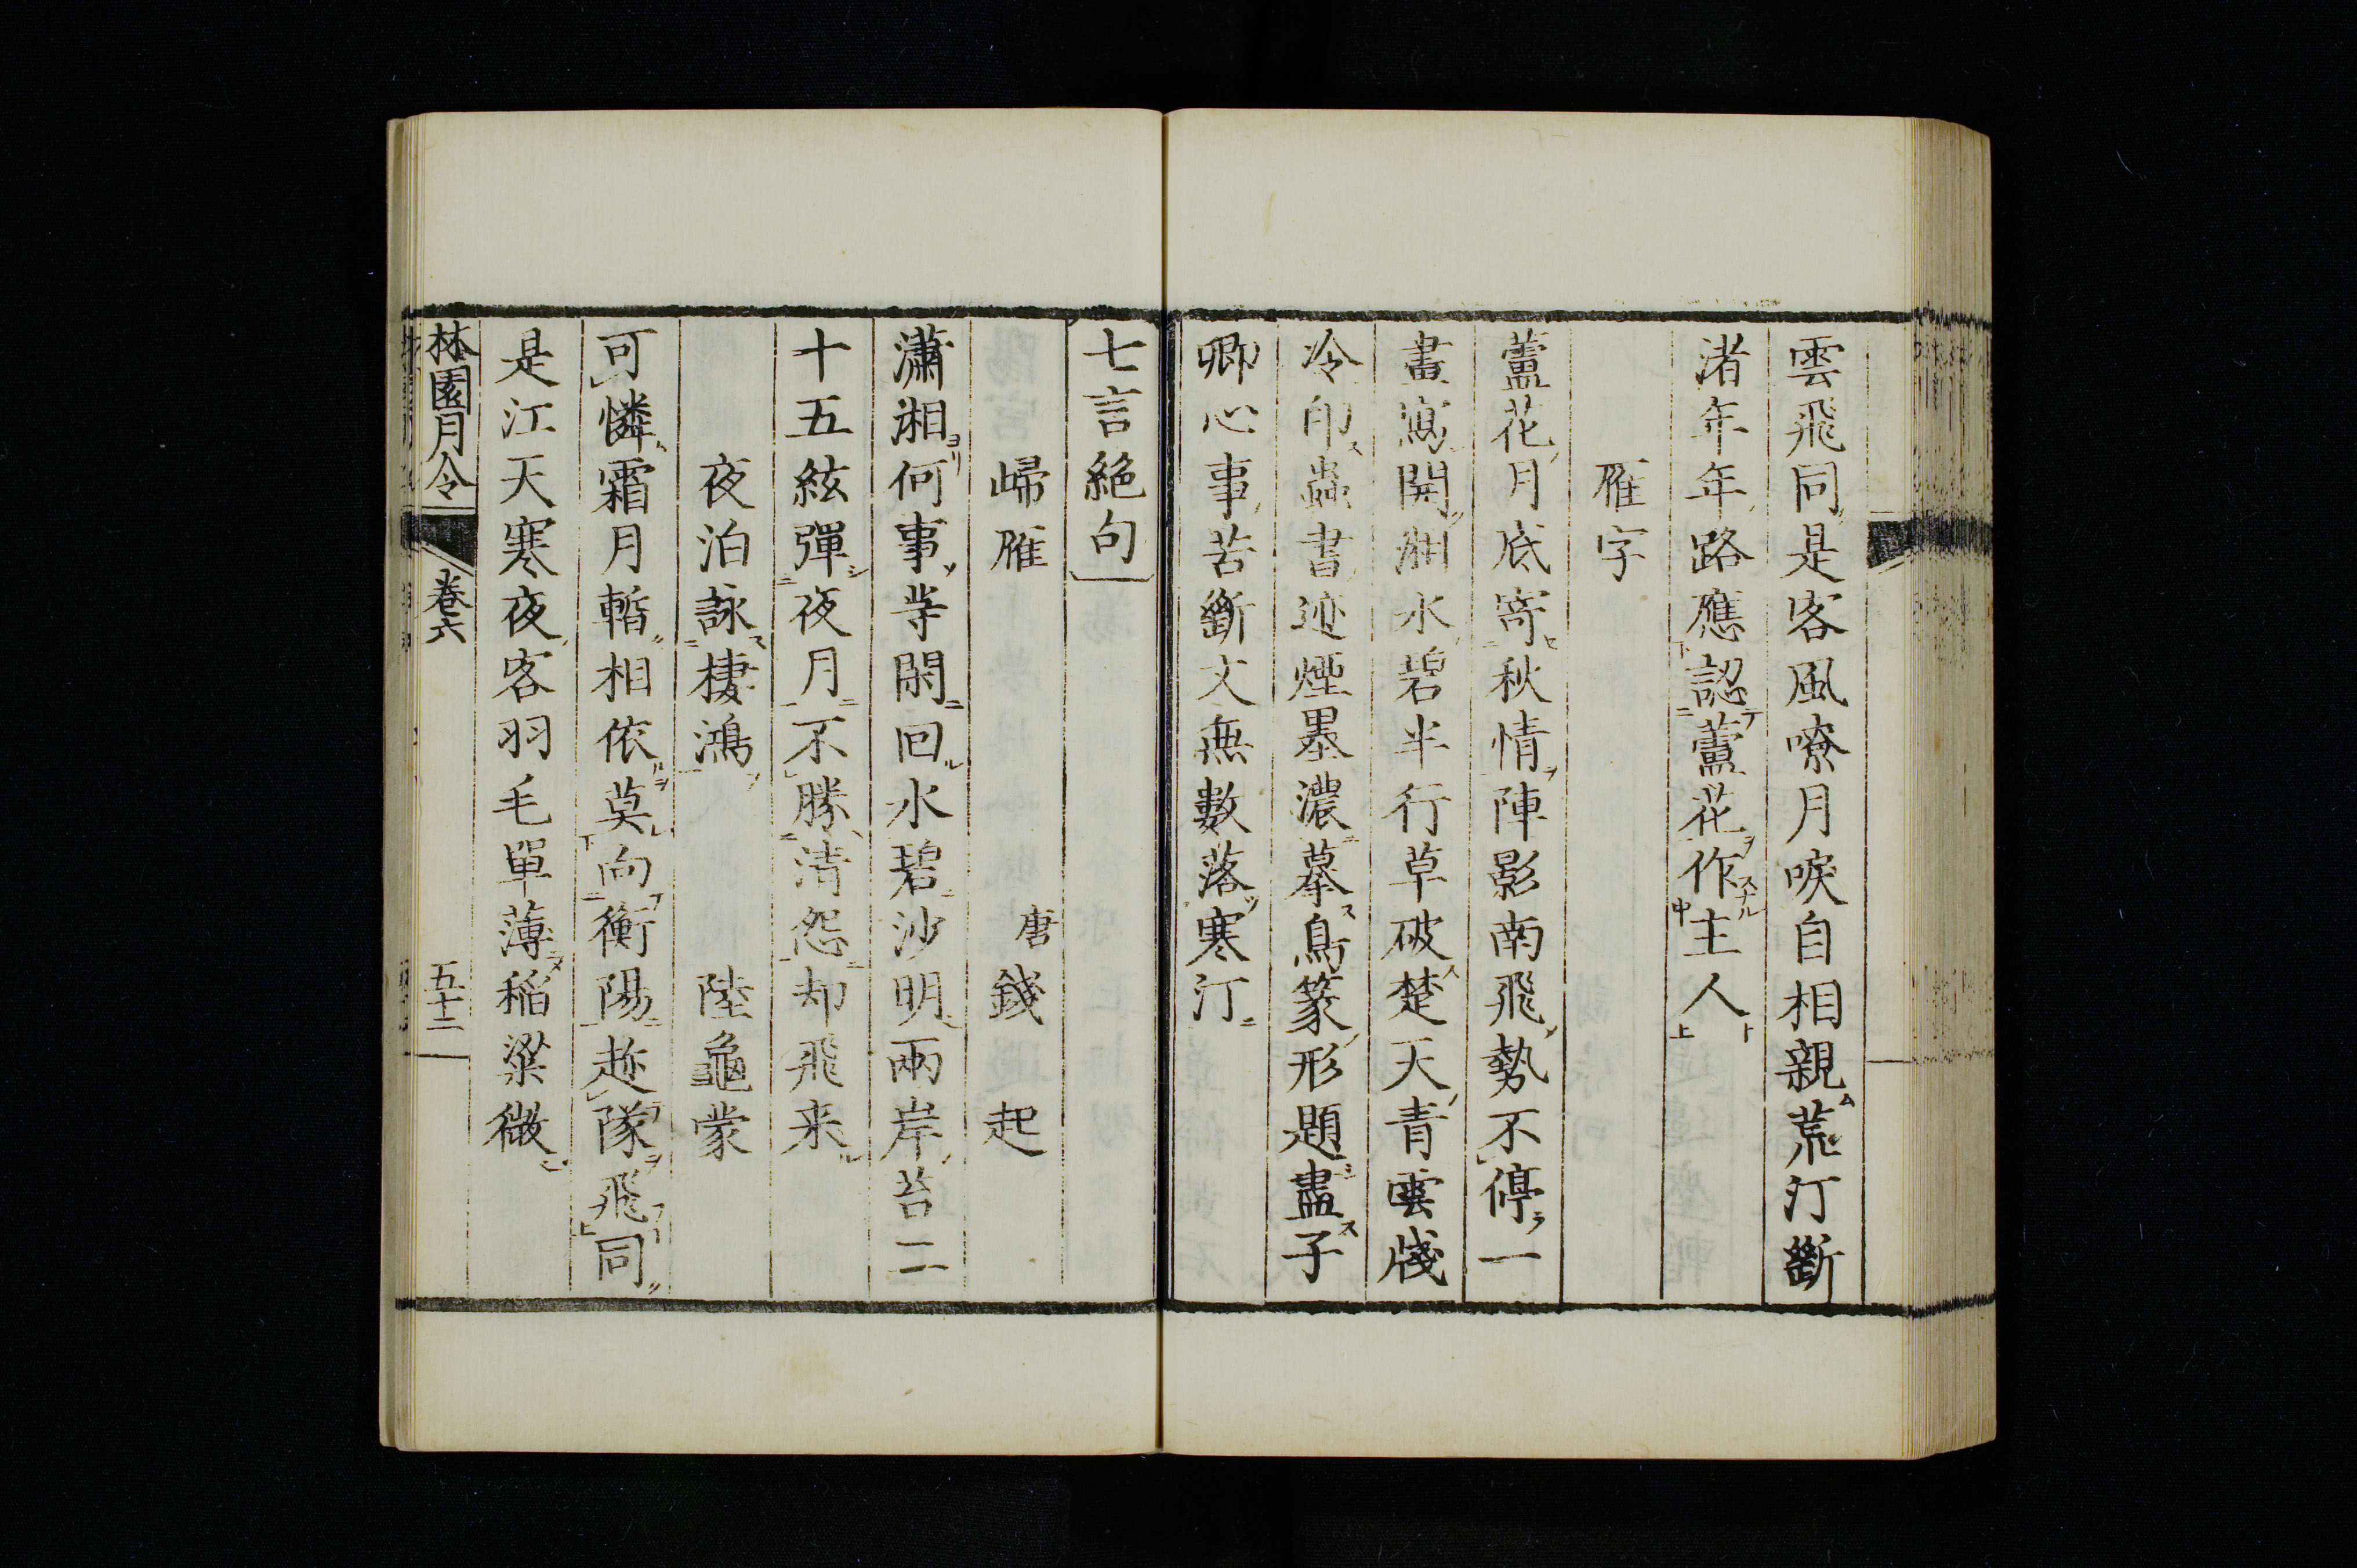 雲飛同是客風嘹月唳自相親荒汀斷
渚年年路應認蘆花作主人
雁字
蘆花月底寄秋情陣影南飛勢不停一
畫寫開湘水碧半行草破楚天青雲牋
冷印蟲書迹煙墨濃摹鳥篆形題盡子
卿心事苦斷文無數落寒汀
七言絶句
歸雁 唐錢起
瀟湘何事等閑回水碧沙明兩岸苔二
十五絃彈夜月不勝清怨却飛来
夜泊詠棲鴻 陸龜蒙
可憐霜月暫相依莫向衡陽趂隊飛同
是江天寒夜客羽毛單薄稲粱微
林園月令 卷六 五十二